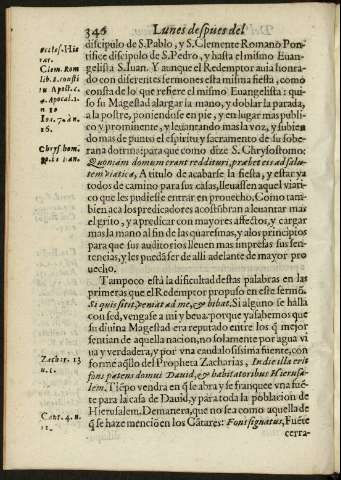 346 Lunes despues del
eccles. Hierar.
Clem. Rom
lib. 8. consti
tu Apost. c.
4. Apocal. 1.
n 10
Ioan. 7. à n.
16.
Chrys. hom.
discipulo de S. Pablo, y S. Clemente Romano Pon-
tifice discipulo de S. Pedro, y hasta el mismo Euan-
gelista S. Iuan. Y aunque el Redemptor auia honra-
do con diferentes sermones esta misma fiesta, como
consta de lo que refiere el mismo Euangelista: qui-
so su Magestad alargar la mano, y doblar la parada,
a la postre, poniendose en pie, y en lugar mas publi-
co y prominente, y leuantando mas la voz, y subien
do mas de punto el espiritu y sacramento de su sobe-
rana dotrina: para que como dize S. Chrysostomo:
Quoniam domum erant reddituri, præbet eis ad salu-
tem viatica, A titulo de acabarse la fiesta, y estar ya
todos de camino para sus casas, lleuassen aquel viati-
co que les pudiesse entrar en prouecho. Como tam-
bien aca los predicadores acostũbran a leuantar mas
el grito, y a predicar con mayores affectos, y cargar
mas la mano al fin de las quaresmas, y a los principios
para que sus auditorios lleuen mas impresas sus sen-
tencias, y les pueda ser de alli adelante de mayor pro
uecho.
Tampoco està la dificultad destas palabras en las
primeras que el Redemptor propuso en este sermõ.
Si quis sitit, veniat ad me, & bibat. Si alguno se halla
con sed, vengase a mi y beua: porque ya sabemos que
su diuina Magestad era reputado entre los q̃ mejor
sentian de aquella nacion, no solamente por agua vi
ua y verdadera, y por vna caudalosissima fuente, con
forme aq̃llo del Propheta Zacharias, In die illa erit
fons patens domui Dauid, & habitatoribus Hierusa-
lem. Tiẽpo vendra en q̃ se abra y se franquee vna fuẽ-
te para la casa de Dauid, y para toda la poblacion de
Hierusalem. De manera, que no sea como aquella de
q̃ se haze mencion en los Cãtares: Fons signatus, Fuẽte
cerra-
Zachar. 13
n. 1.
Cant. 4. n.
12.